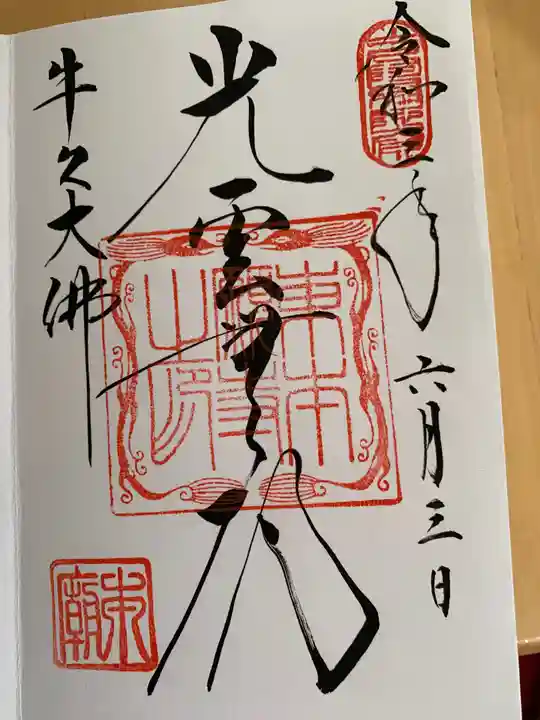 令和三年六月三日
光雲無碍
東本
願寺
之印
牛久大佛
本廟